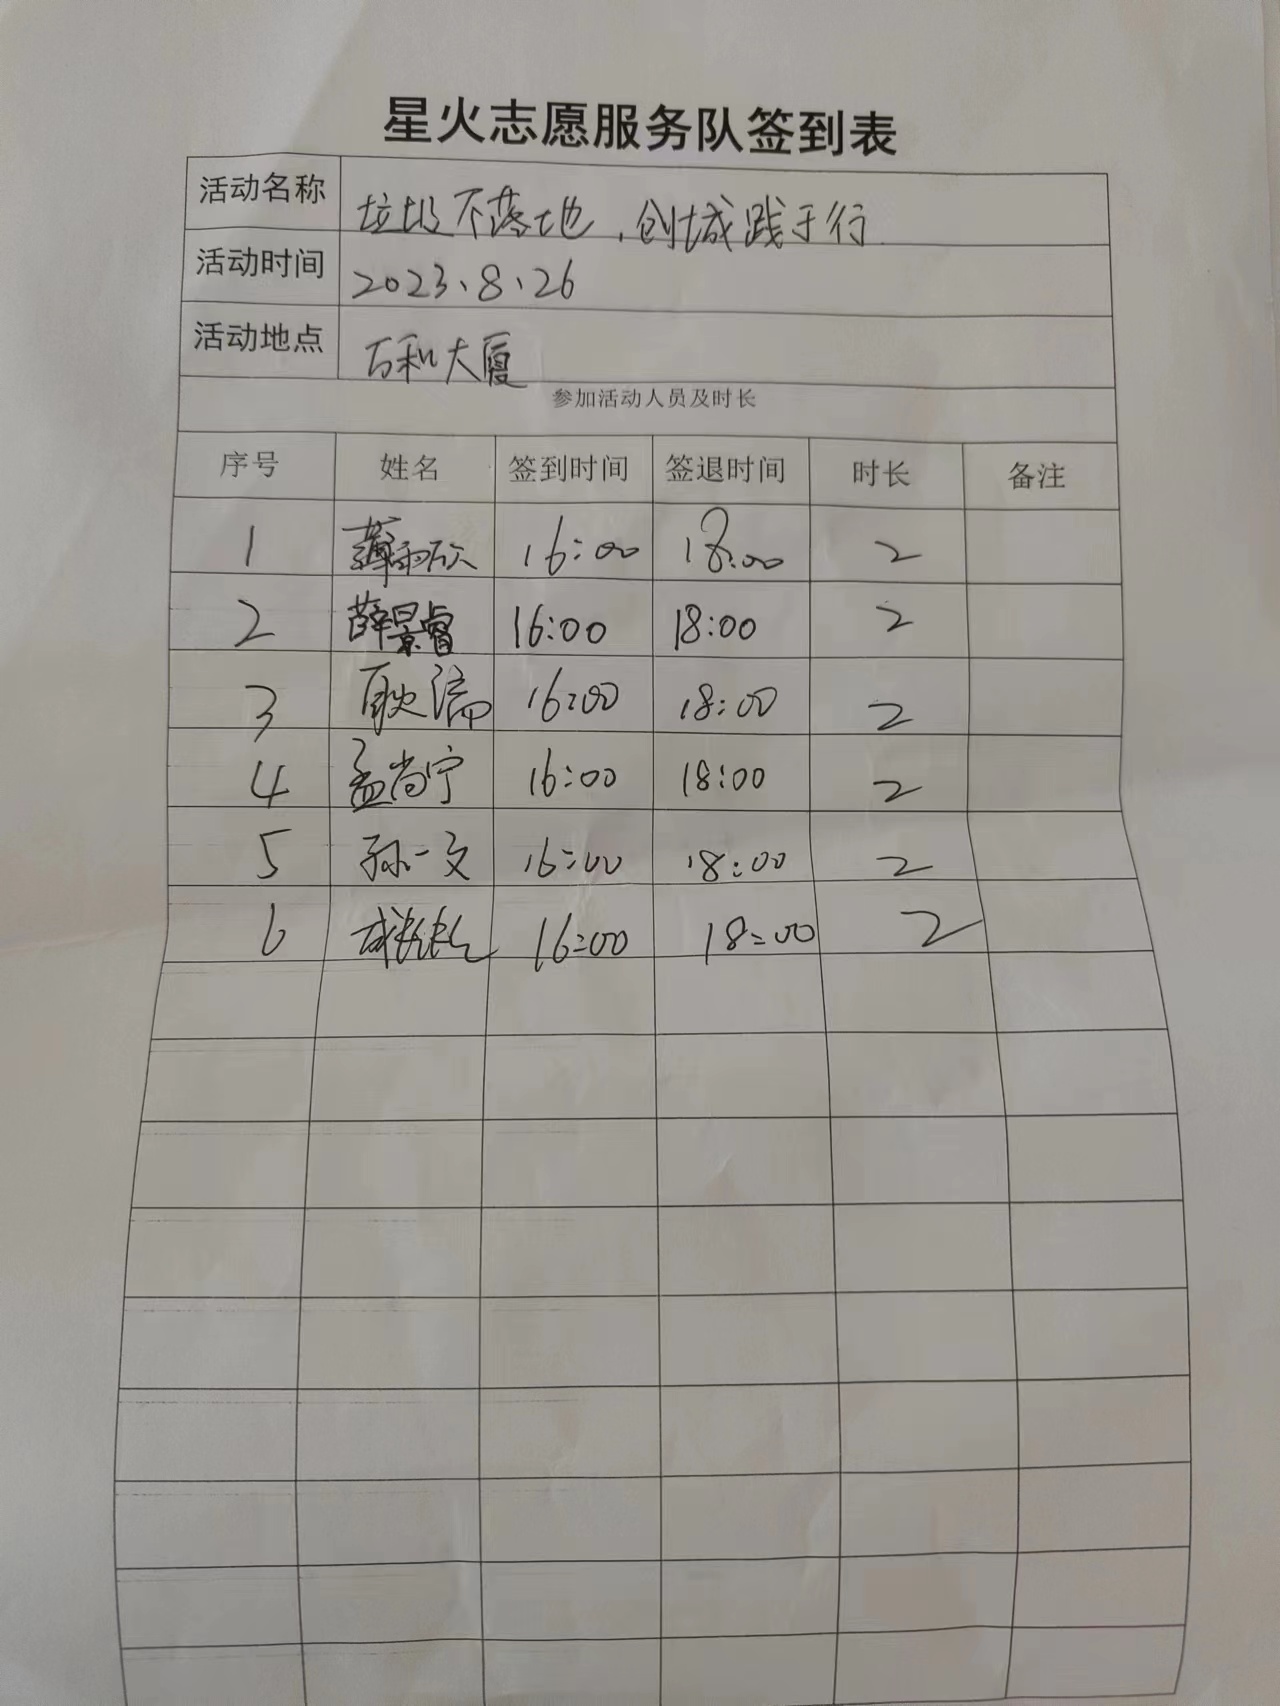 星火志愿服务队签到表
活动名称 垃圾不落地，创城践于行
活动时间 2023、8、26
活动地点 万和大厦
参加活动人员及时长
序号 姓名 签到时间 签退时间 时长 备注
1 16:00 18:00 2
2 薛景睿 16:00 18:00 2
3 耿 16:00 18:00 2
4 孟尚宁 16:00 18:00 2
5 孙一文 16:00 18:00 2
6 16:00 18:00 2